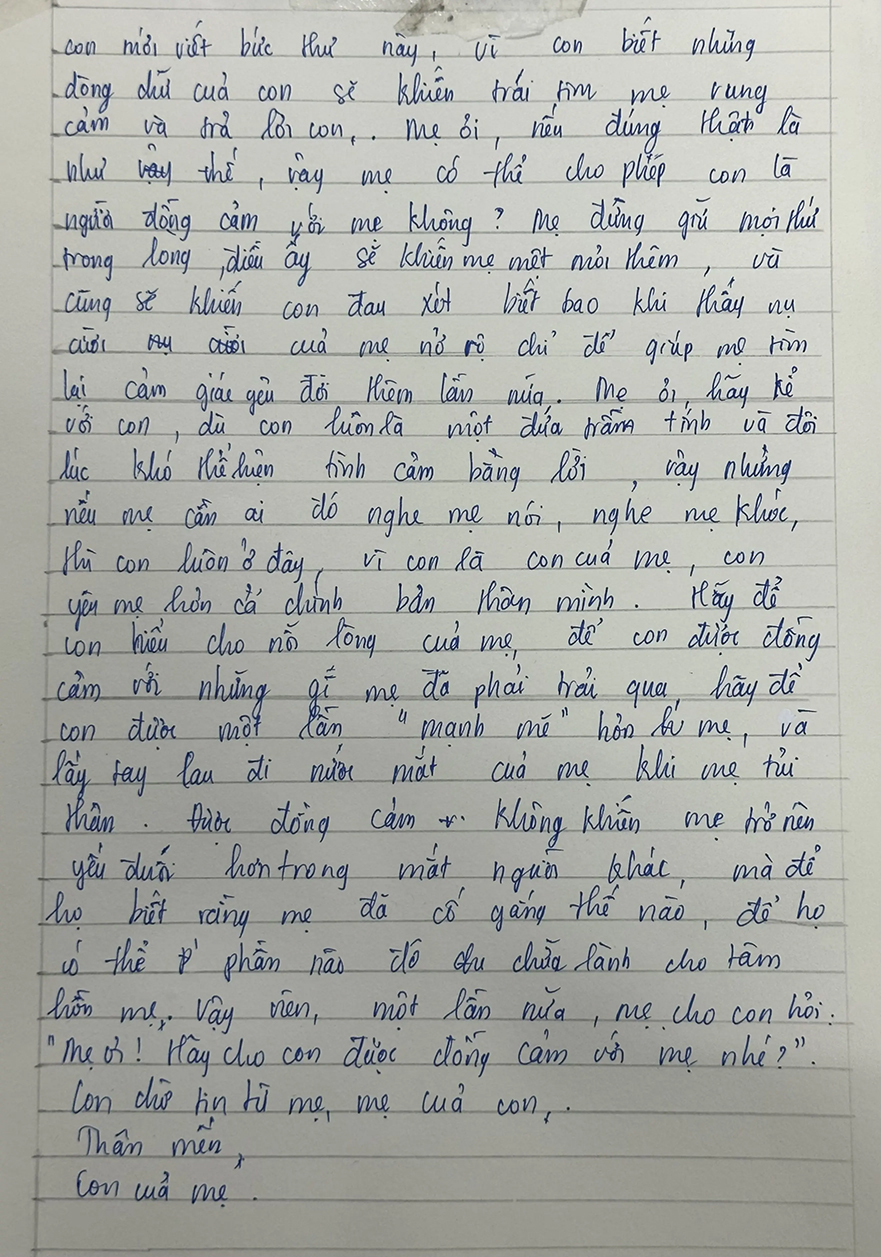 con mới viết bức thư này, vì con biết những
dòng chữ cuả con sẽ khiến trái tim mẹ rung
cảm và trả lời con,. Mẹ ơi, nếu đúng thật là
như vậy thế, vậy mẹ có thể cho phép con là
người đồng cảm với mẹ không? Mẹ đừng giữ mọi thứ
trong lòng, điều ấy sẽ khiến mẹ mệt mỏi thêm, và
cũng sẽ khiến con đau xót biết bao khi thấy nụ
cười nụ cười cuả mẹ nở rộ chỉ để giúp mẹ tìm
lại cảm giác yêu đời thêm lần nữa. Mẹ ơi, hãy kể
với con, dù con luôn là một đứa trầm tính và đôi
lúc khó thể hiện tình cảm bằng lời, vậy nhưng
nếu mẹ cần ai đó nghe mẹ nói, nghe mẹ khóc,
thì con luôn ở đây, vì con là con cuả mẹ, con
yêu mẹ hơn cả chính bản thân mình. Hãy để
con hiểu cho nỗi lòng cuả mẹ, để con được đồng
cảm với những gì mẹ đã phải trải qua, hãy để
con được một lần "mạnh mẽ" hơn mẹ, và
lấy tay lau đi nước mắt cuả mẹ khi mẹ tủi
thân. Được đồng cảm không khiến mẹ trở nên
yếu đuối hơn trong mắt người khác, mà để
họ biết rằng mẹ đã cố gắng thế nào, để họ
có thể phần nào đó chữa lành cho tâm
hồn mẹ. Vậy nên, một lần nữa, mẹ cho con hỏi:
"Mẹ ơi! Hãy cho con được đồng cảm với mẹ nhé?".
Con chờ tin từ mẹ, mẹ cuả con,.
Thân mến,
Con cuả mẹ.